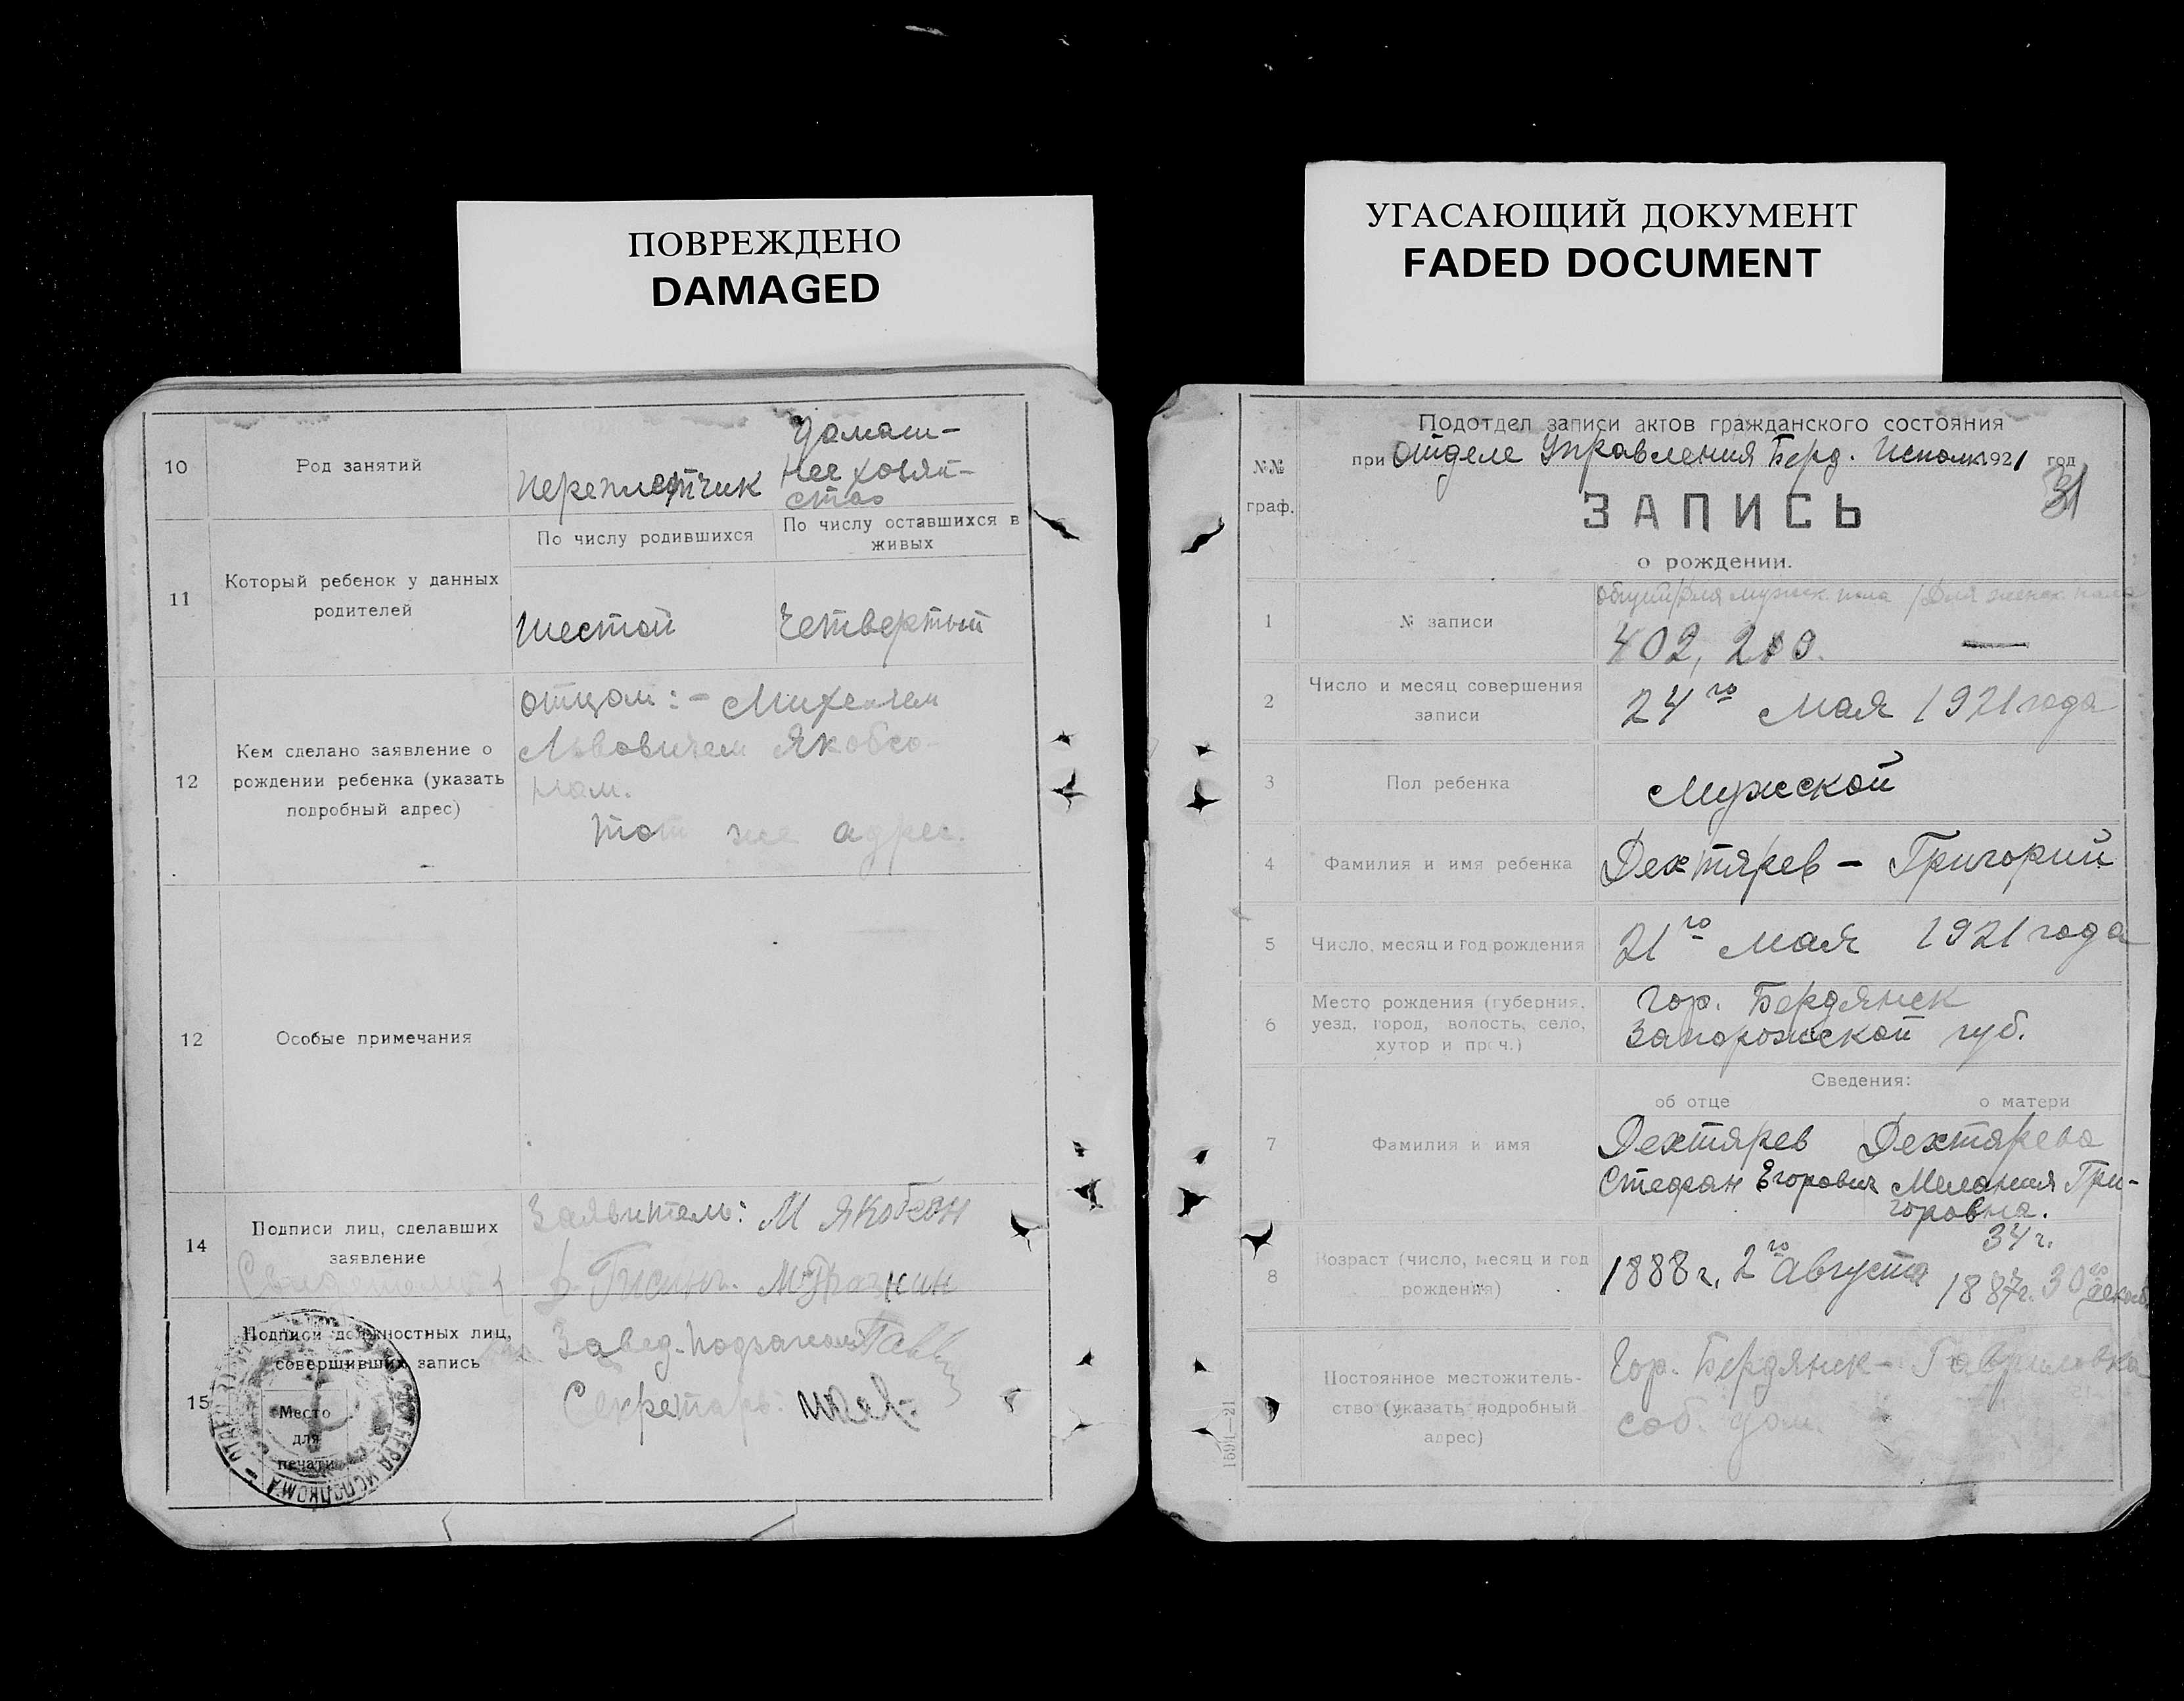 ПОВРЕЖДЕНО
DAMAGED
10
Род занятий
переплетчик
домаш-
нее хозяй-
ство
11
Который ребенок у данных
родителей
По числу родившихся
По числу оставшихся в
живых
шестой
четвертый
12
Кем сделано заявление о
рождении ребенка (указать
подробный адрес)
отцом: - Михелем
Львовичем Якобсо-
ном.
тот же адрес.
12
Особые примечания
14
Подписи лиц, сделавших
заявление
Заявитель: М Якобсон
15
Подписи должностных лиц,
совершивших запись
Место
для
печати
Завед.
Секретарь:
УГАСАЮЩИЙ ДОКУМЕНТ
FADED DOCUMENT
№№
граф.
Подотдел записи актов гражданского состояния
при Отделе Управления Берд. Исполк. 1921 год
31
ЗАПИСЬ
о рождении.
1
№ записи
общий/для мужск. пола /Для женск. пола
402, 210. —
2
Число и месяц совершения
записи
24го Мая 1921 года
3
Пол ребенка
Мужской
4
Фамилия и имя ребенка
Дехтярев - Григорий
5
Число, месяц и год рождения
21го Мая 1921 года
6
Место рождения (губерния,
уезд, город, волость, село,
хутор и проч.)
Гор. Бердянск
Запорожской губ.
Сведения:
об отце
о матери
7
Фамилия и имя
Дехтярев
Стефан Егорович
Дехтярева
Мелания Гри-
горовна.
8
Возраст (число, месяц и год
рождения)
1888 г. 2го Августа
34 г.
1887 г. 30го декаб.
Постоянное местожитель-
ство (указать подробный
адрес)
Гор. Бердянск - Гавриловка
соб. дом.